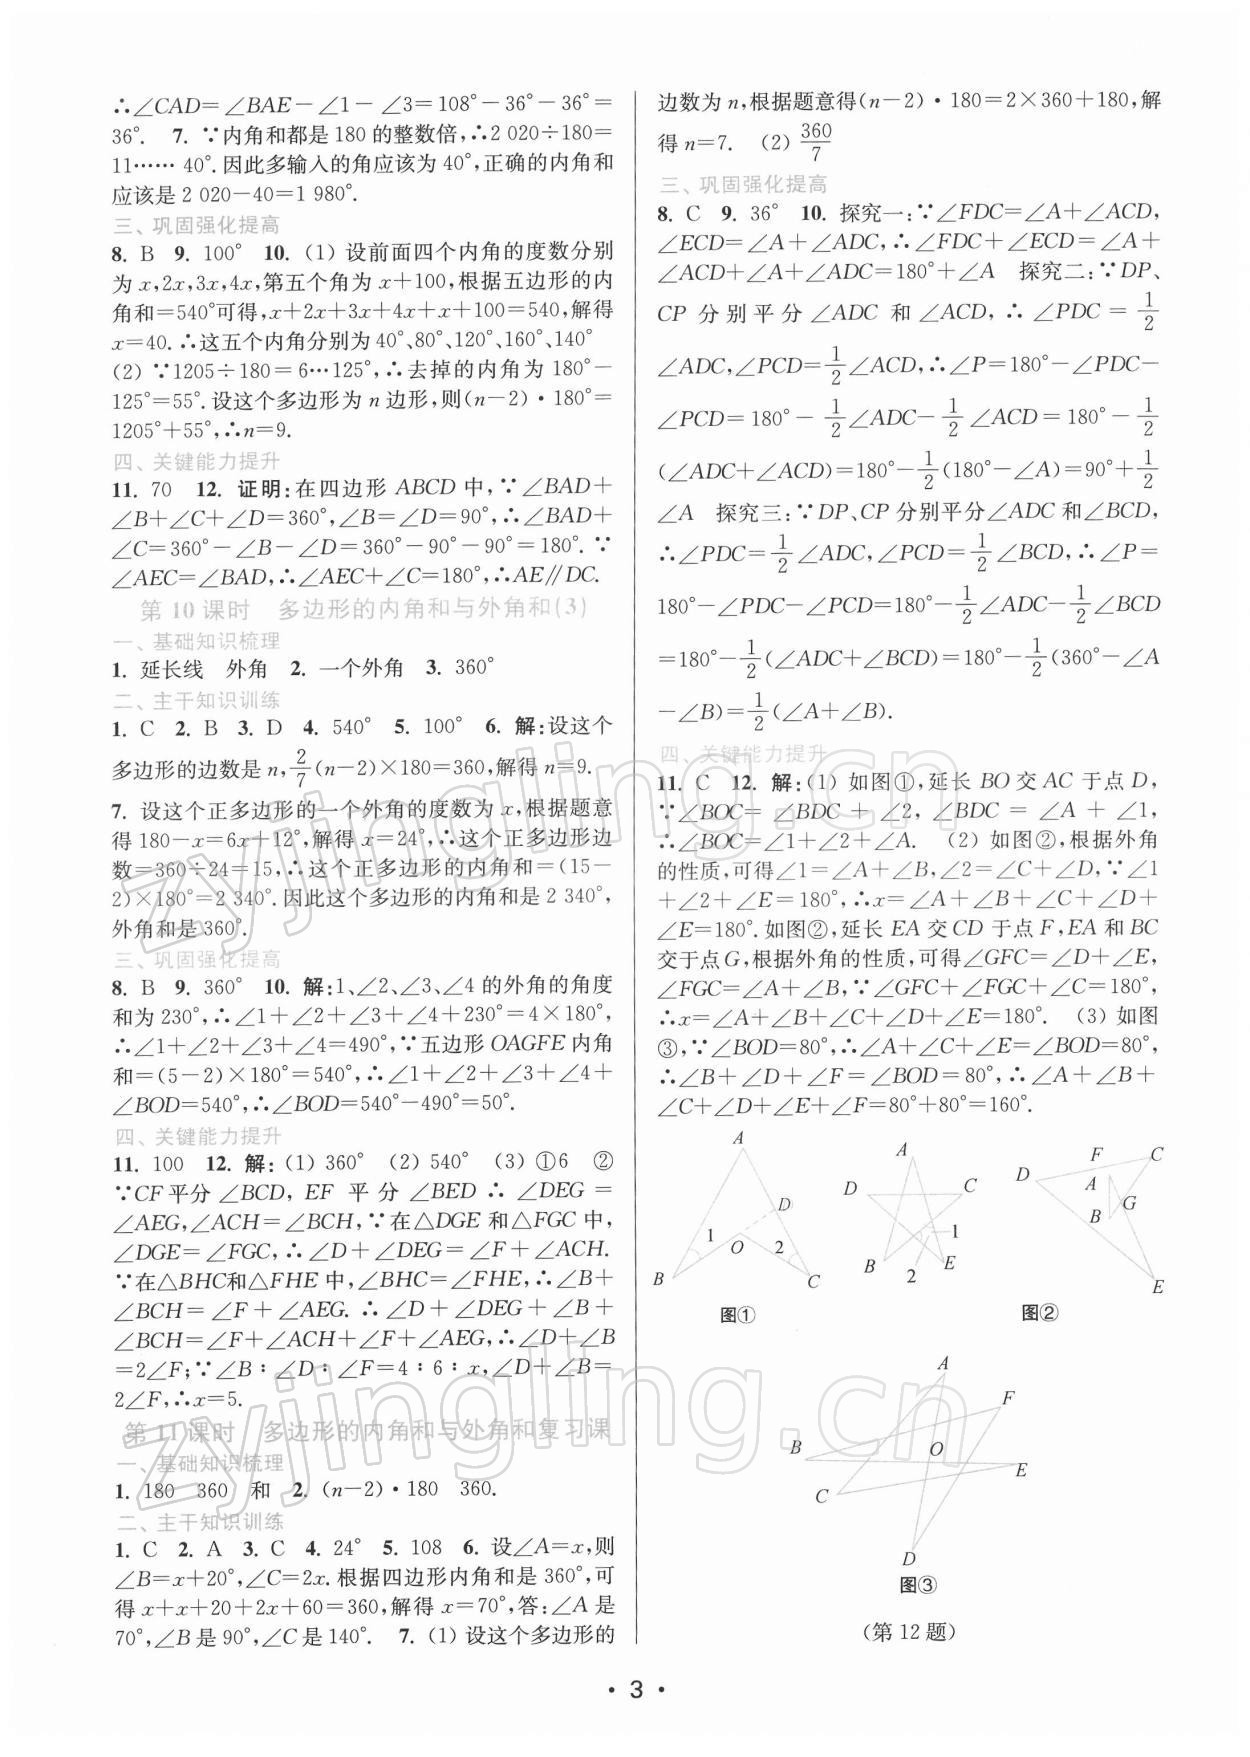 ∴∠CAD=∠BAE-∠1-∠3=108°-36°-36°=
36°. 7. ∵内角和都是180的整数倍,∴2 020÷180=
11…… 40°.因此多输入的角应该为40°,正确的内角和
应该是2 020-40=1 980°.
三、巩固强化提高
8. B 9. 100° 10. (1) 设前面四个内角的度数分别
为x,2x,3x,4x,第五个角为x+100,根据五边形的内
角和=540°可得,x+2x+3x+4x+x+100=540,解得
x=40.∴这五个内角分别为40°、80°、120°、160°、140°
(2) ∵1205÷180=6…125°,∴去掉的内角为180°-
125°=55°.设这个多边形为n边形,则(n-2)·180°=
1205°+55°,∴n=9.
四、关键能力提升
11. 70 12. 证明:在四边形ABCD中,∵∠BAD+
∠B+∠C+∠D=360°,∠B=∠D=90°,∴∠BAD+
∠C=360°-∠B-∠D=360°-90°-90°=180°. ∵
∠AEC=∠BAD,∴∠AEC+∠C=180°,∴AE∥DC.
第10课时 多边形的内角和与外角和(3)
一、基础知识梳理
1. 延长线 外角 2. 一个外角 3. 360°
二、主干知识训练
1. C 2. B 3. D 4. 540° 5. 100° 6. 解:设这个
多边形的边数是n,2/7(n-2)×180=360,解得n=9.
7. 设这个正多边形的一个外角的度数为x,根据题意
得180-x=6x+12°,解得x=24°,∴这个正多边形边
数=360÷24=15,∴这个正多边形的内角和=(15-
2)×180°=2 340°.因此这个多边形的内角和是2 340°,
外角和是360°.
三、巩固强化提高
8. B 9. 360° 10. 解:1、∠2、∠3、∠4的外角的角度
和为230°,∴∠1+∠2+∠3+∠4+230°=4×180°,
∴∠1+∠2+∠3+∠4=490°,∵五边形OAGFE内角
和=(5-2)×180°=540°,∴∠1+∠2+∠3+∠4+
∠BOD=540°,∴∠BOD=540°-490°=50°.
四、关键能力提升
11. 100 12. 解:(1) 360° (2) 540° (3) ①6 ②
∵CF平分∠BCD, EF 平分∠BED ∴ ∠DEG =
∠AEG,∠ACH=∠BCH,∵在△DGE和△FGC中,
∠DGE=∠FGC,∴∠D+∠DEG=∠F+∠ACH.
∵在△BHC和△FHE中,∠BHC=∠FHE,∴∠B+
∠BCH=∠F+∠AEG. ∴∠D+∠DEG+∠B+
∠BCH=∠F+∠ACH+∠F+∠AEG,∴∠D+∠B
=2∠F;∵∠B∶∠D∶∠F=4∶6∶x,∠D+∠B=
2∠F,∴x=5.
第11课时 多边形的内角和与外角和复习课
一、基础知识梳理
1. 180 360 和 2. (n-2)·180 360.
二、主干知识训练
1. C 2. A 3. C 4. 24° 5. 108 6. 设∠A=x,则
∠B=x+20°,∠C=2x.根据四边形内角和是360°,可
得x+x+20+2x+60=360,解得x=70°,答:∠A是
70°,∠B是90°,∠C是140°. 7. (1) 设这个多边形的
边数为n,根据题意得(n-2)·180=2×360+180,解
得n=7. (2) 360/7
三、巩固强化提高
8. C 9. 36° 10. 探究一:∵∠FDC=∠A+∠ACD,
∠ECD=∠A+∠ADC,∴∠FDC+∠ECD=∠A+
∠ACD+∠A+∠ADC=180°+∠A 探究二:∵DP、
CP分别平分∠ADC和∠ACD,∴∠PDC=1/2
∠ADC,∠PCD=1/2∠ACD,∴∠P=180°-∠PDC-
∠PCD=180°-1/2∠ADC-1/2∠ACD=180°-1/2
(∠ADC+∠ACD)=180°-1/2(180°-∠A)=90°+1/2
∠A 探究三:∵DP、CP分别平分∠ADC和∠BCD,
∴∠PDC=1/2∠ADC,∠PCD=1/2∠BCD,∴∠P=
180°-∠PDC-∠PCD=180°-1/2∠ADC-1/2∠BCD
=180°-1/2(∠ADC+∠BCD)=180°-1/2(360°-∠A
-∠B)=1/2(∠A+∠B).
四、关键能力提升
11. C 12. 解:(1) 如图①,延长BO交AC于点D,
∵∠BOC=∠BDC+∠2,∠BDC=∠A+∠1,
∴∠BOC=∠1+∠2+∠A. (2) 如图②,根据外角
的性质,可得∠1=∠A+∠B,∠2=∠C+∠D,∵∠1
+∠2+∠E=180°,∴x=∠A+∠B+∠C+∠D+
∠E=180°.如图②,延长EA交CD于点F,EA和BC
交于点G,根据外角的性质,可得∠GFC=∠D+∠E,
∠FGC=∠A+∠B,∵∠GFC+∠FGC+∠C=180°,
∴x=∠A+∠B+∠C+∠D+∠E=180°. (3) 如图
③,∵∠BOD=80°,∴∠A+∠C+∠E=∠BOD=80°,
∴∠B+∠D+∠F=∠BOD=80°,∴∠A+∠B+
∠C+∠D+∠E+∠F=80°+80°=160°.
A
D
1
O
2
B
C
图①
A
D
C
1
B
E
2
F
C
D
A
G
B
E
图②
A
F
B
O
E
C
D
图③
(第12题)
· 3 ·
zyjingling.cn
zyjingling.cn